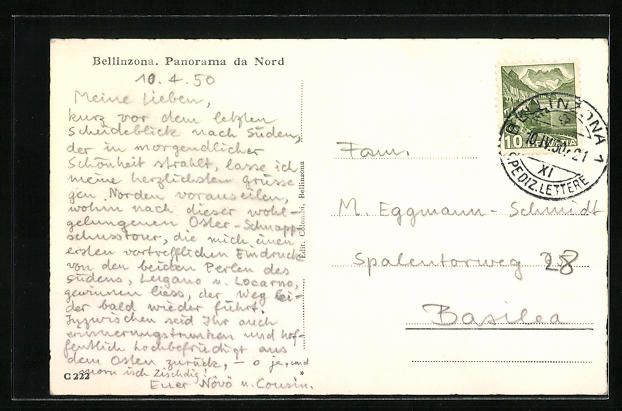 Bellinzona. Panorama da Nord
10.4.50
Meine Lieben,
kurz vor dem letzten
Scheideblick nach Süden,
der in morgendlicher
Schönheit strahlt, lasse ich
meine herzlichsten Grüsse
gen Norden vorauseilen,
wohin nach dieser wohl-
gelungenen Oster-Schnapp-
schusstour, die mich einen
ersten vortrefflichen Eindruck
von den beiden Perlen des
Südens, Lugano u. Locarno,
gewinnen liess, der Weg lei-
der bald wieder führt.
Inzwischen seid Ihr auch
erinnerungstrunken und hof-
fentlich hochbefriedigt aus
dem Osten zurück, – o ja, und
isch Zischdig!
Euer Növö u. Cousin.
C 222
Edit. Colombi, Bellinzona
10
HELVETIA
BELLINZONA 1
10.IV.50.-21
XI
SPEDIZ. LETTERE
Fam.
M. Eggmann-Schmidt
Spalentorweg 28
Basilea